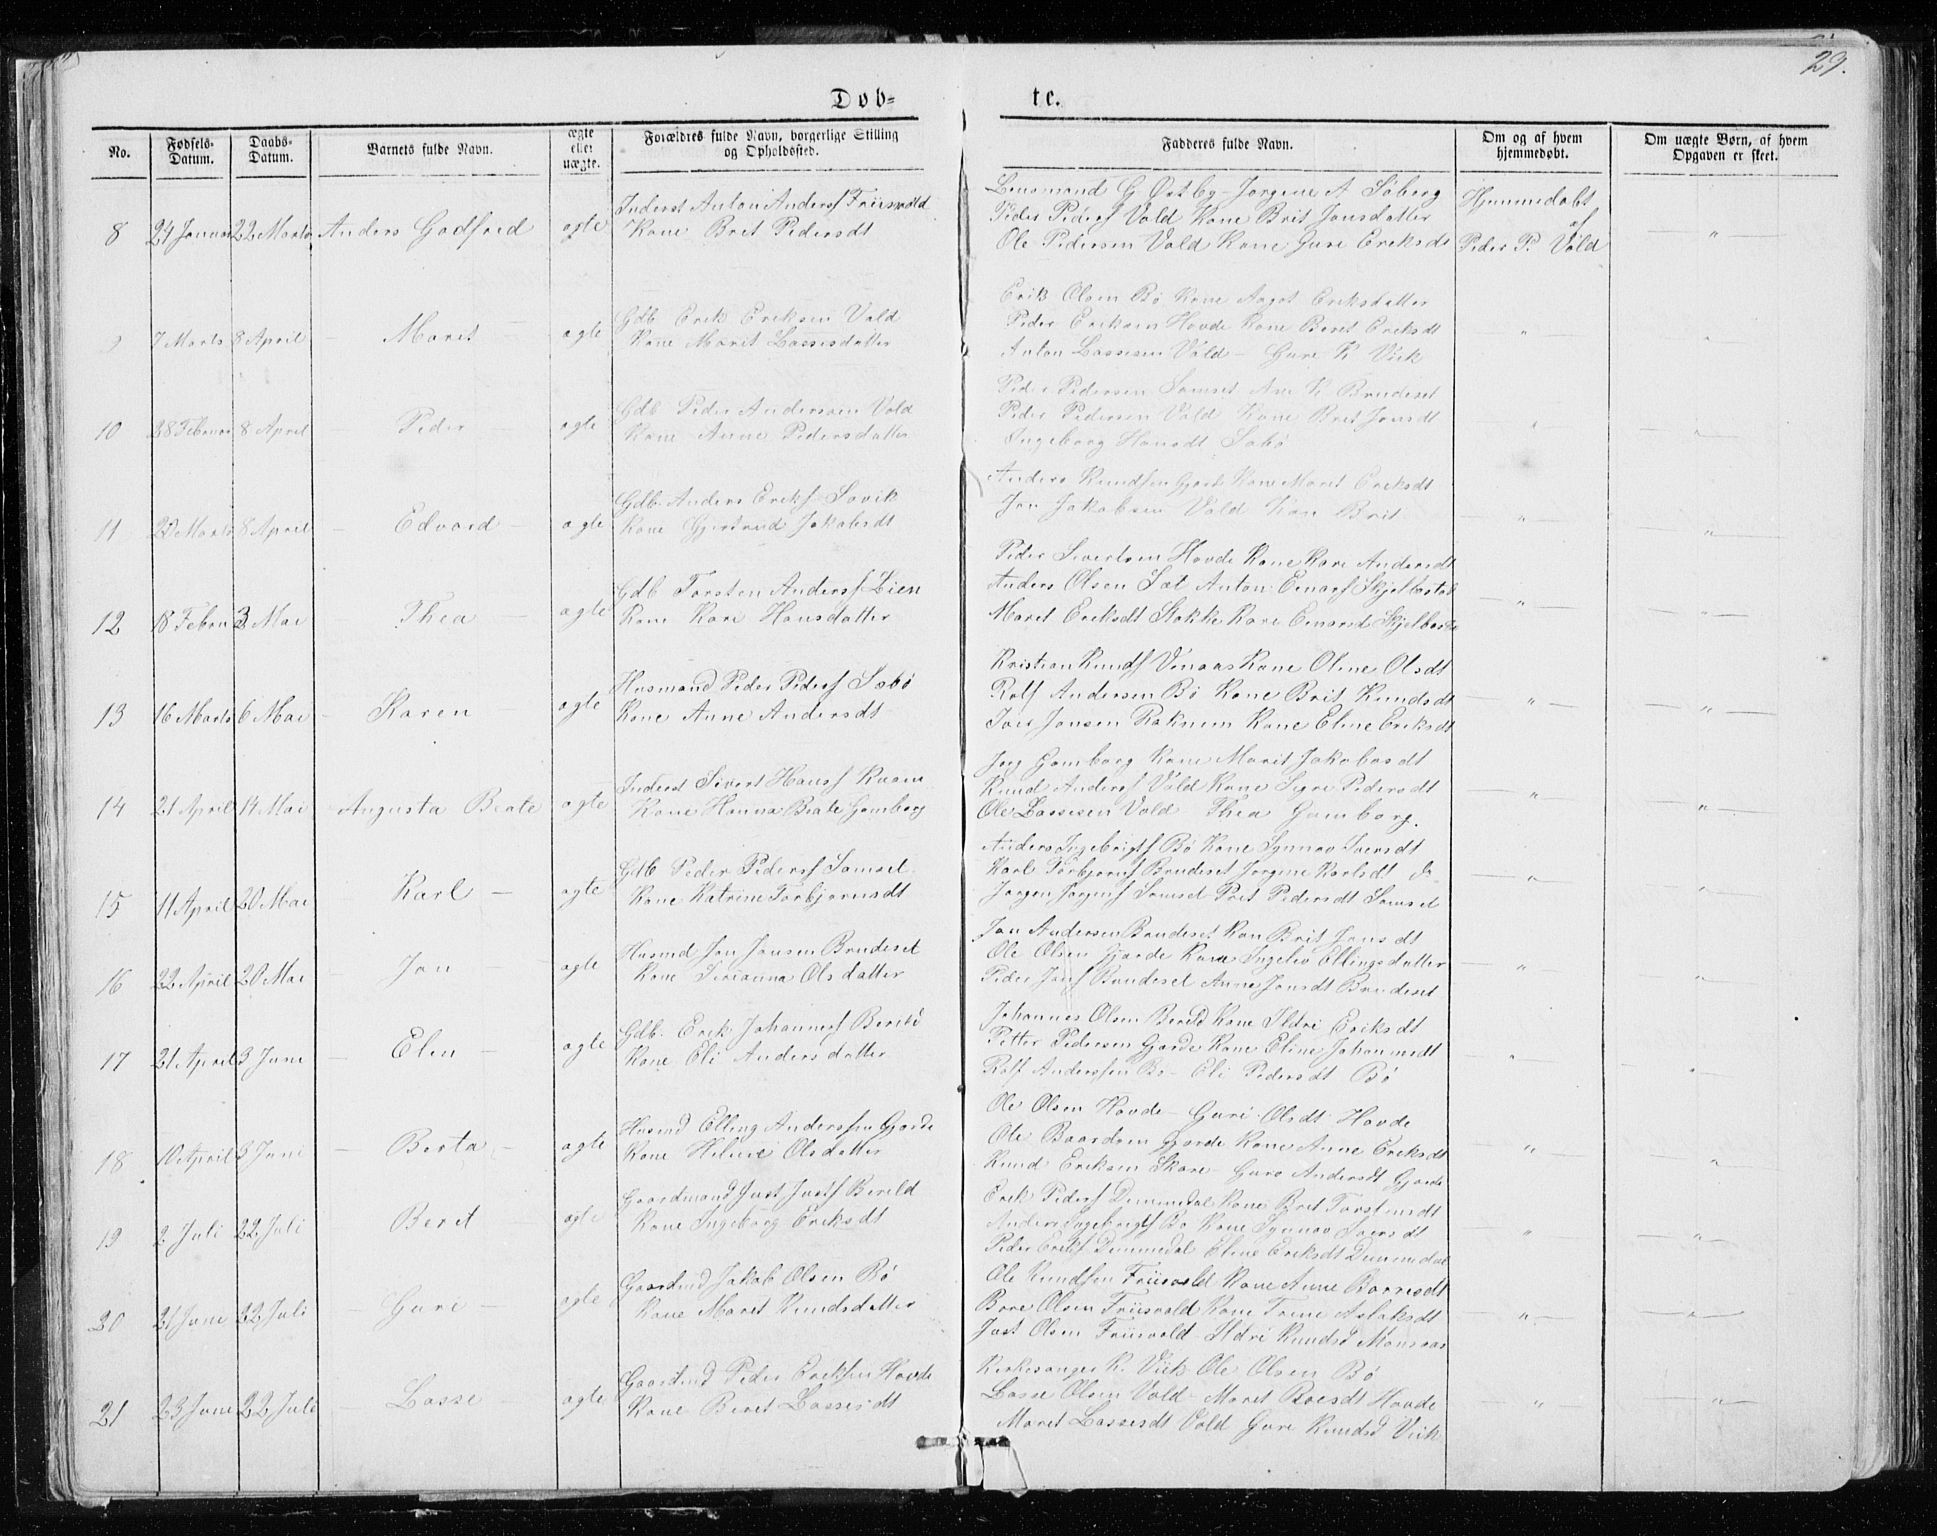 29.
Døb-
te.
No.
Fødsels-
Datum.
Daabs-
Datum.
Barnets fulde Navn.
ægte
eller
uægte.
Forældres fulde Navn, borgerlige Stilling
og Opholdssted.
Fadderes fulde Navn.
Om og af hvem
hjemmedøbt.
Om uægte Børn, af hvem
Opgaven er skeet.
8 24 Januar 22 Marts Anders Godfred ægte
Inderst Anton Andersf Friisvold
Kone Brit Pedersdt
Lensmand G Østby - Jørgine A Søberg
Peder Pedersf Vold Kone Brit Jonsdatter
Ole Pedersen Vold Kone Guri Eriksdt
Hjemmedøbt
af
Peder P. Vold
9 7 Marts 8 April - Maret - ægte
Gdb Erik Eriksen Vold
Kone Marit Lassesdatter
Erik Olsen Bø Kone Aagot Eriksdatter
Peder Eriksen Hovde Kone Beret Eriksdt
Anton Lassesen Vold - Guri K Viik
10 28 Februar 8 April - Peder - ægte
Gdb Peder Andersen Vold
Kone Anne Pedersdatter
Peder Pedersen Samset K Brudeset
Peder Pedersen Vold Kone Brit Jonsdt
Ingeborg Hansdt Søbø
11 Marts 8 April - Edvard - ægte
Gdb. Anders Eriksf Søvik
Kone Gjertrud Jakobsdt
Anders Knudsen Gjorde Kone Maret Eriksdt
Jon Jakobsen Vold Kone Brit
Peder Sivertsen Hovde Kone Kari Andersdt
12 18 Februar 3 Mai Thea - ægte
Gdb Torsten Andersf Lien
Kone Kari Hansdatter
Anders Olsen Sæt Anton Skjelbostad
Maret Eriksdt Stokke Kari
13 16 Marts 6 Mai - Karen - ægte
Husmand Peder Pedersf Søbø
Kone Anne Andersdt
Kristian Knudsf Venaas Kone Oline Olsdt
Rolf Andersen Bø Kone Brit Knudsdt
Jonsen Raknem Kone Eline Eriksdt
14 21 April 14 Mai Augusta Beate ægte
Inderst Sivert Hansf
Kone Hanna Beate Gomborg
Gomborg Kone Marit Jakobsdt
Knud Andersf Vold Kone Pedersdt
Ole Lassesen Vold Thea Gomborg.
15 11 April 20 Mai Karl - ægte
Gdb Peder Pedersf Samset
Kone Katrine Torbjørnsdt
Anders Ingebrigtsf Bø Kone Synnøv Iversdt
Karl Torbjørnsf Brudeset Jørgine Karlsdt do
Jørgen Samset Pedersdt Samset
16 22 April 20 Mai - Jon - ægte
Husmd Jon Jonsen Brudeset
Kone Serianna Olsdatter
Jon Andersen Brudeset Kone Brit Jonsdt
Ole Olsen Gjorde Kone Ingeliv Ellingsdatter
Peder Jonsf Brudeset Anne Jonsdt Brudeset
17 21 April 3 Juni - Elen - ægte
Gdb. Erik Johannesf Berild
Kone Eli Andersdatter
Johannes Olsen Berild Kone Ildri Eriksdt
Petter Pedersen Gjorde Kone Eline Johannesdt
Rolf Anderssen Bø - Eli Pedersdt Bø
18 10 April 3 Juni - Berta - ægte
Husmd Elling Anderssen Gjorde
Kone Olsdatter
Ole Olsen Hovde - Guri Olsdt Hovde
Ole Baardsen Gjorde Kone Anne Eriksdt
Knud Eriksen Skare - Guro Andersdt Gjorde
19 2 Juli 22 Juli Beret - ægte
Gaardmand Just Justsf Berild
Kone Ingeborg Eriksdt
Erik Pedersf Dimmedal Kone Brit Torstensdt
Anders Ingebrigtsf Bø Kone Synnøv Iversdt
Peder Eriksf Dimmedal Eline Eriksdt Dimmedal
20 21 Juni 22 Juli Guri - ægte
Gaardmd Jakob Olsen Bø
Kone Maret Knudsdatter
Ole Knudsen Friisvold Kone Anne
Olsen Friisvold Kone Trine Aslaksdt
Just Olsen Friisvold Ildri Knudsd
21 23 Juni 22 Juli - Lasse - ægte
Gaardmd Peder Eriksen Hovde
Kone Beret Lassesdt
Kirkesanger K. Viik Ole Olsen Bø
Lasse Olsen Vold - Maret Hovde
Maret Lassesdt Vold Guri Knudsd Viik